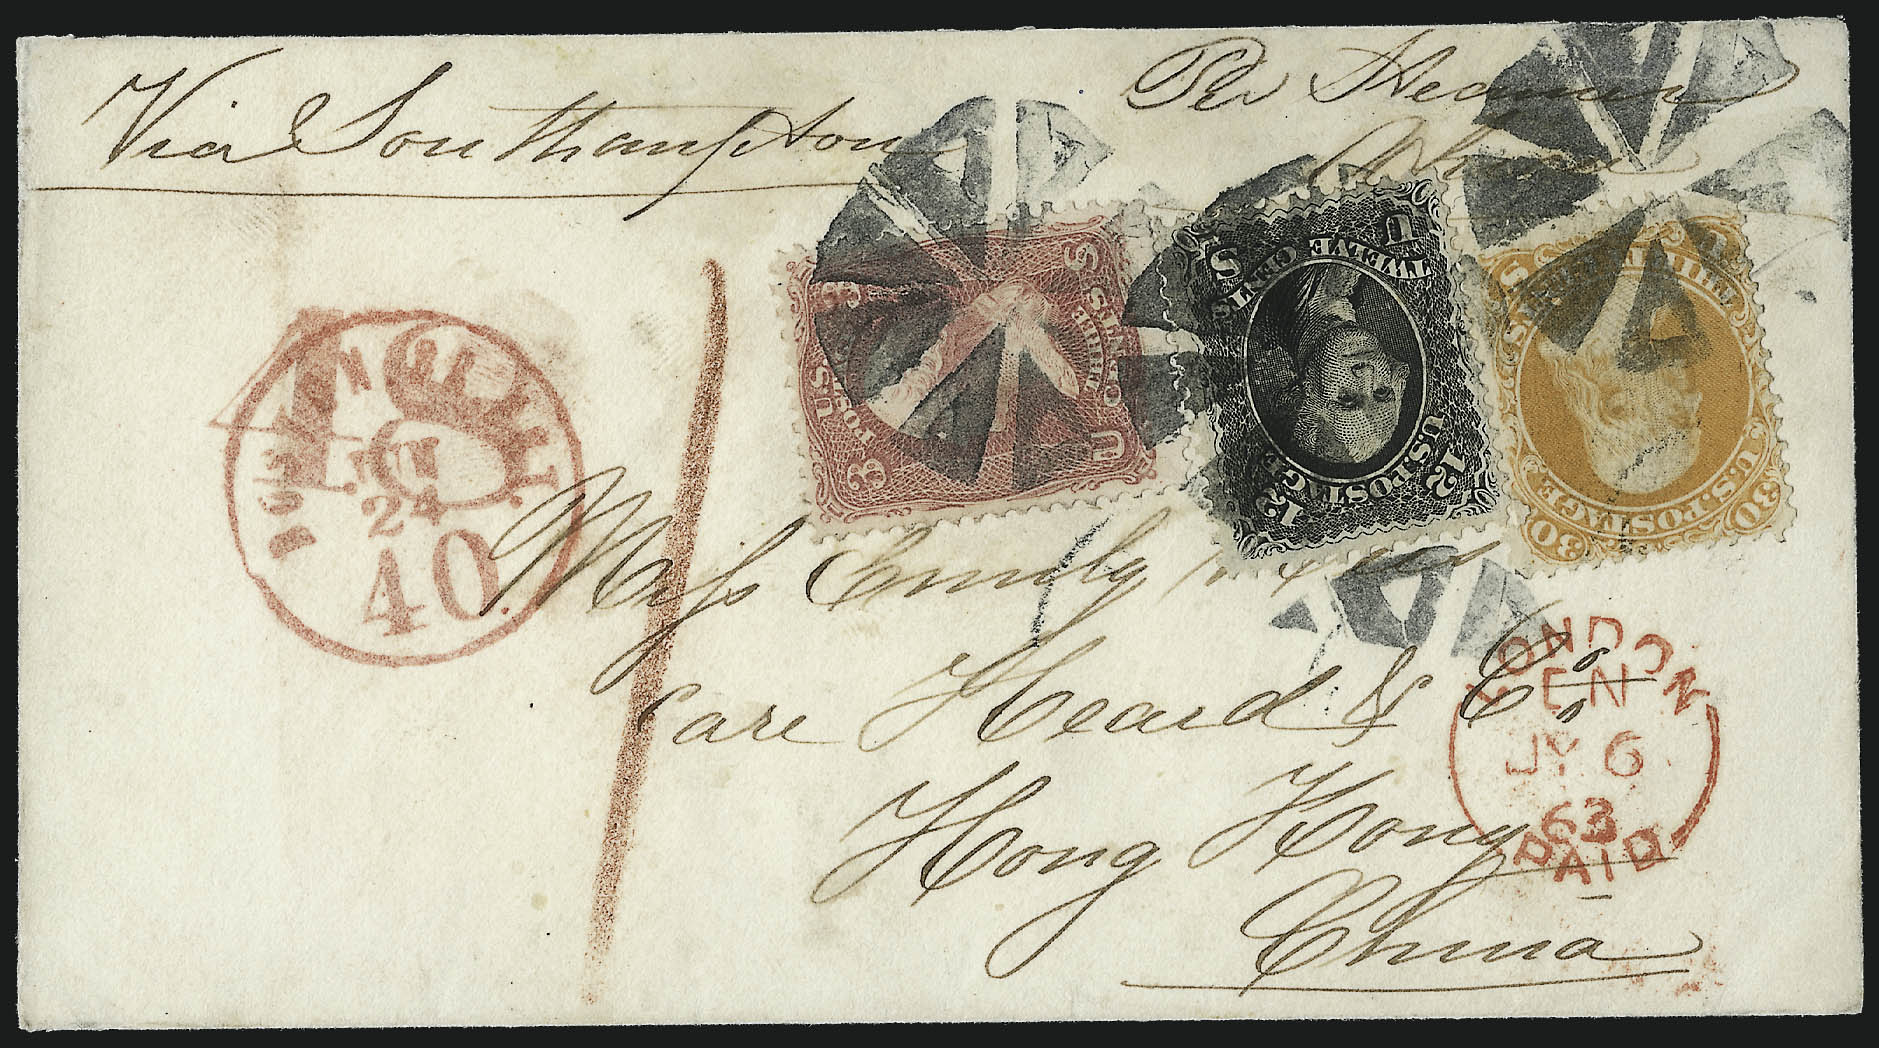 Via Southampton
Per Steamer
BOSTON BR. PKT.
JUN
24
40
3 3
U S
THREE CENTS
U.S. POSTAGE
12 12
U S
TWELVE CENTS
U.S. POSTAGE
30 30
U.S. POSTAGE
Miss Emily
care Heard & Co.
Hong Kong
China
LONDON
EN
JY 6
63
PAID